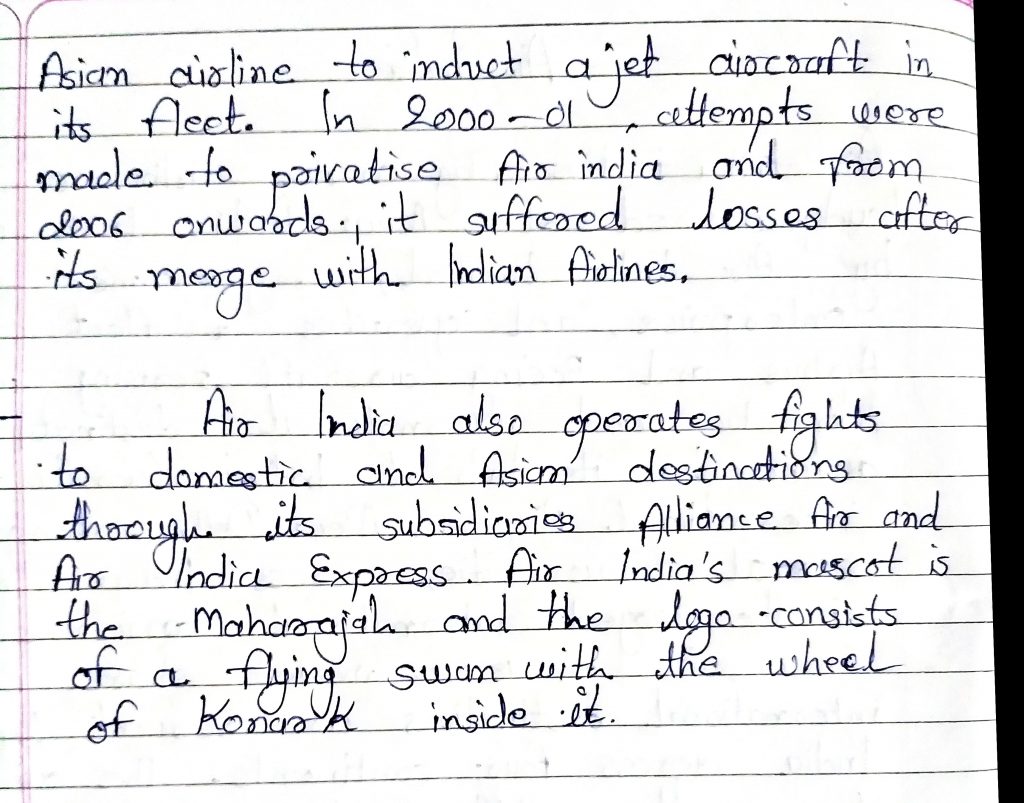 Asian airline to induct a jet aircraft in
its fleet. In 2000-01, attempts were
made to privatise Air india and from
2006 onwards, it suffered losses after
its merge with Indian Airlines.
Air India also operates fights
to domestic and Asian destinations
through its subsidiaries Alliance Air and
Air India Express. Air India's mascot is
the Maharajah and the logo consists
of a flying swan with the wheel
of Konark inside it.